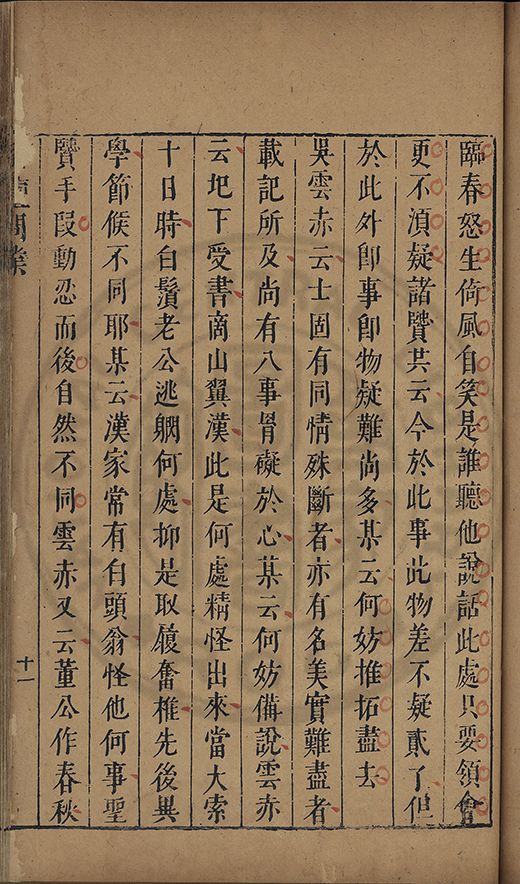 臨春怒生倚風自笑是誰聽他說話此處只要領會
更不須疑諸贒共云今於此事此物差不疑貳了但
於此外卽事卽物疑難尚多某云何妨推拓盡去
吳雲赤云士固有同情殊斷者亦有名美實難盡者
載記所及尚有八事胃礙於心某云何妨備說雲赤
云圯下受書商山翼漢此是何處精怪出來當大索
十日時白鬚老公逃躲何處抑是取履奮椎先後異
學節候不同耶某云漢家常有白頭翁怪他何事聖
贒手段動忍而後自然不同雲赤又云董公作春秋
業
十一